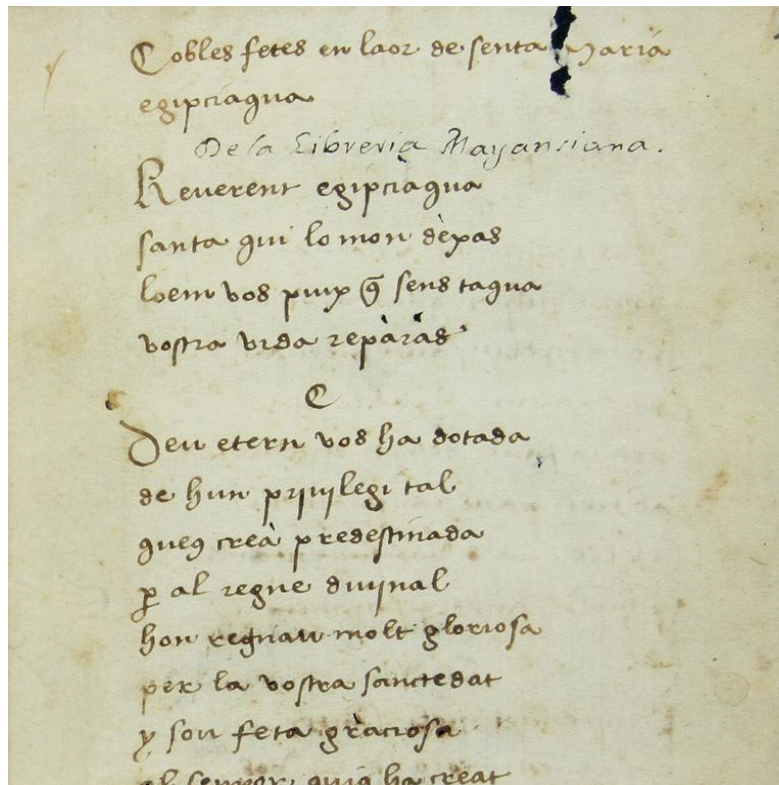 Cobles fetes en laor de senta Maria
egipciaqua
De la Libreria Mayansiana.
Reverent egipciaqua
santa qui lo mon dèxas
loem vos puix q̃ sens taqua
vostra vida reparàs
C
Deu etern vos ha dotada
de hun priuilegi tal
queus creà predestinada
ꝑ al regne diuinal
hon regnau molt gloriosa
per la vostra sanctedat
y sou feta graciosa
al senyor quius ha creat